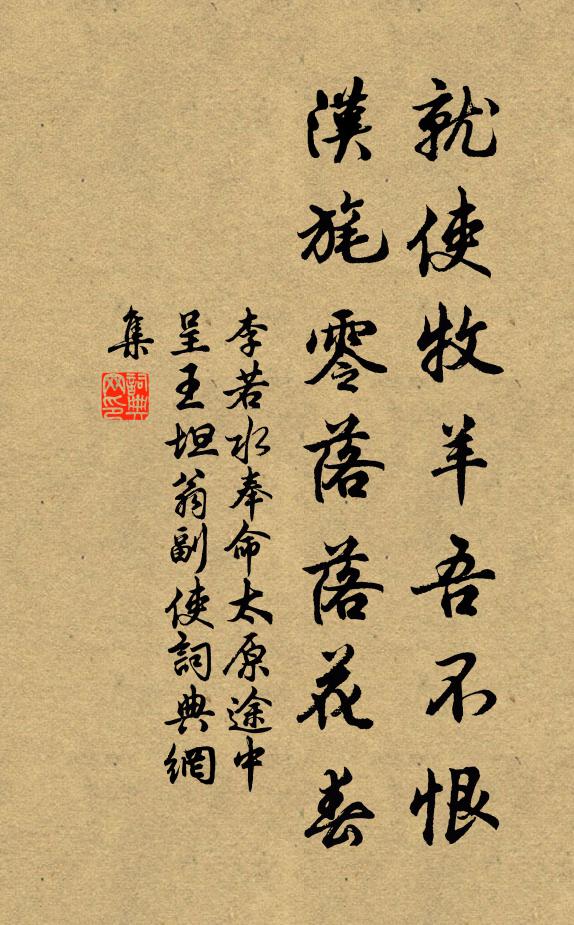 就使牧羊吾不恨
漢旄零落落花春
李若水奉命太原途中
呈王坦翁副使詞典網
集
詞典网印